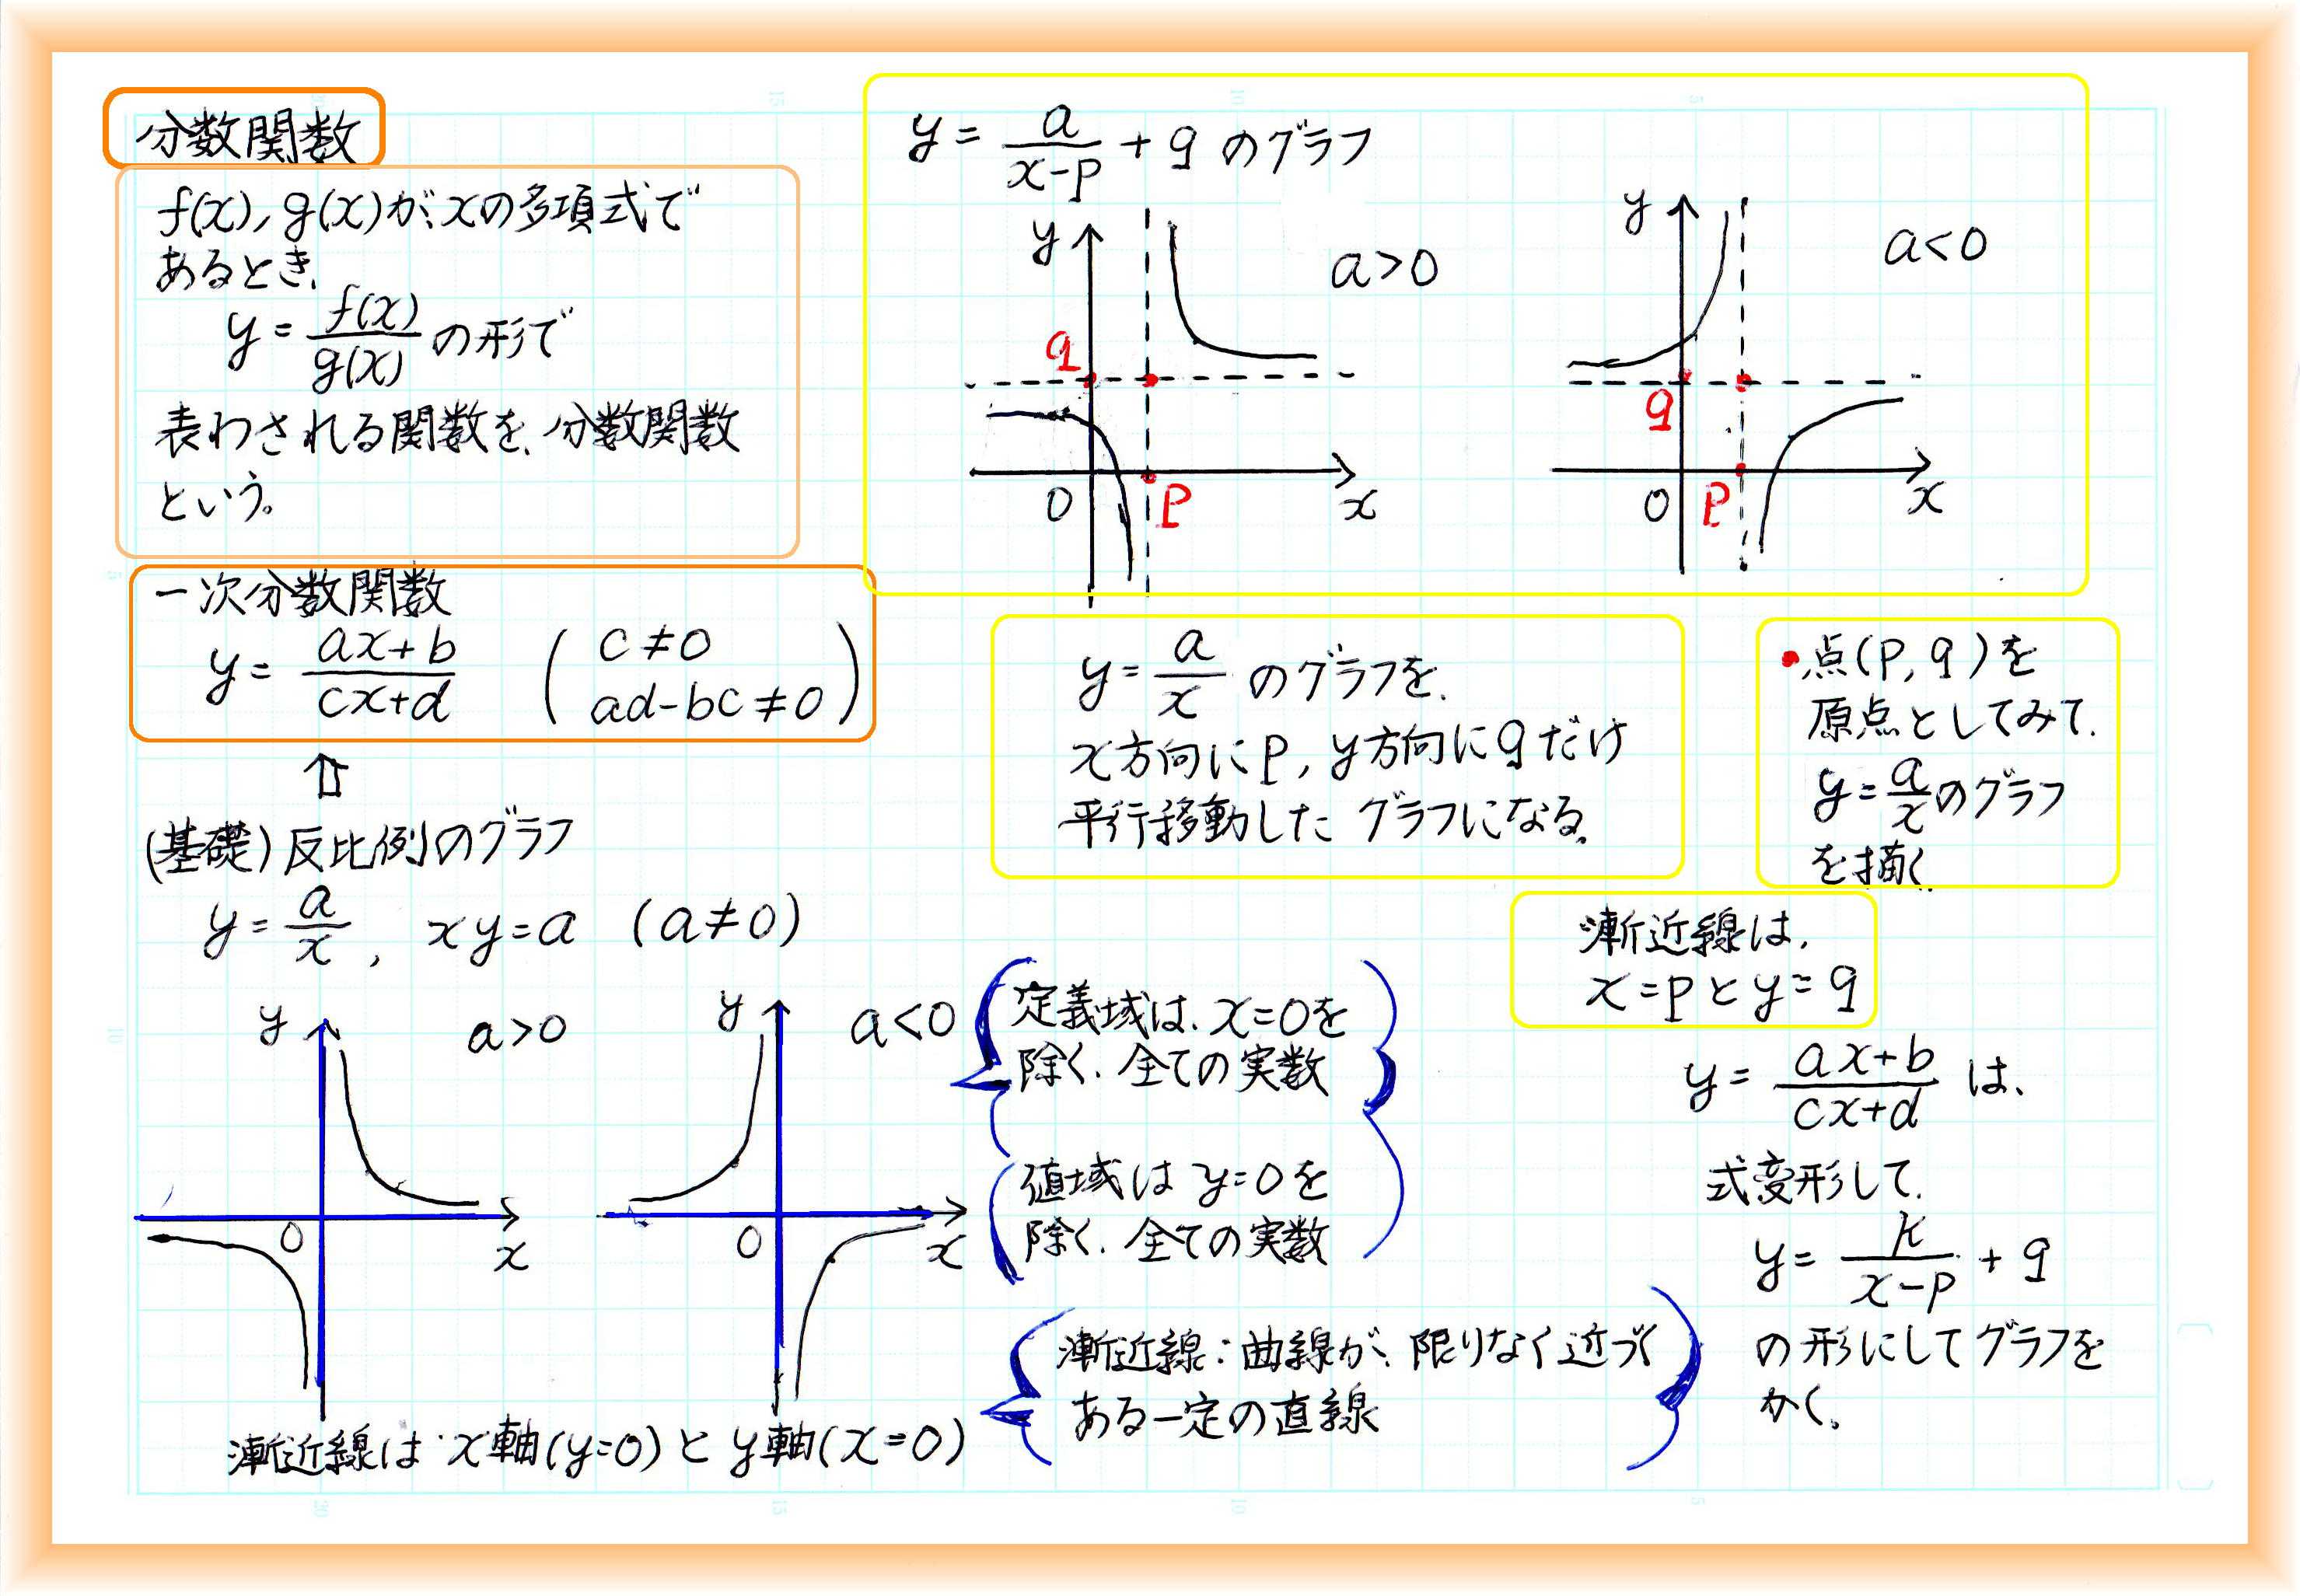 分数関数
f(x), g(x)が、xの多項式で
あるとき、
y = f(x)/g(x) の形で
表わされる関数を、分数関数
という。
一次分数関数
y = (ax+b)/(cx+d) ( c≠0
ad-bc≠0 )
⇧
(基礎) 反比例のグラフ
y = a/x , xy=a (a≠0)
y
a>0
0
x
y
a<0
0
x
漸近線は x軸(y=0) と y軸(x=0)
定義域は、x=0を
除く、全ての実数
値域は y=0を
除く、全ての実数
漸近線：曲線が、限りなく近づく
ある一定の直線
y = a/(x-p) + q のグラフ
y
a>0
q
0
p
x
y
a<0
q
0
p
x
y = a/x のグラフを、
x方向にp, y方向にqだけ
平行移動した グラフになる。
•点(p, q)を
原点としてみて、
y = a/x のグラフ
を描く。
漸近線は、
x=pとy=q
y = (ax+b)/(cx+d) は、
式変形して、
y = k/(x-p) + q
の形にしてグラフを
かく。